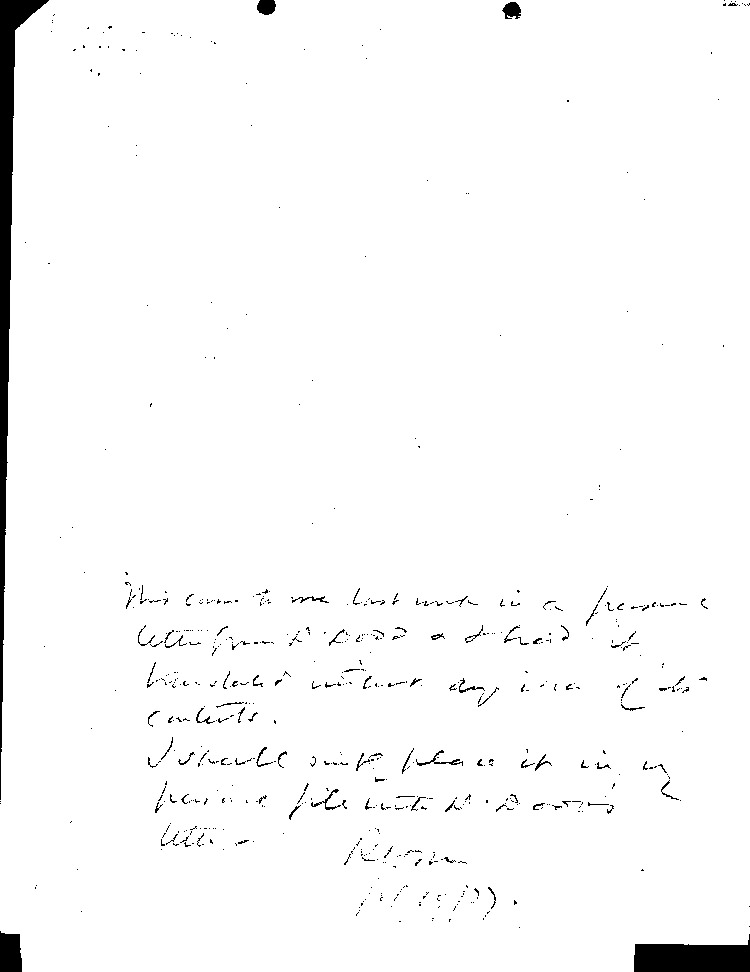 This came to me last week in a personal
letter from Dr Dodd & I had it
translated without any idea of its
contents.
I shall simply place it in my
personal file with Dr. Dodd's
letter.